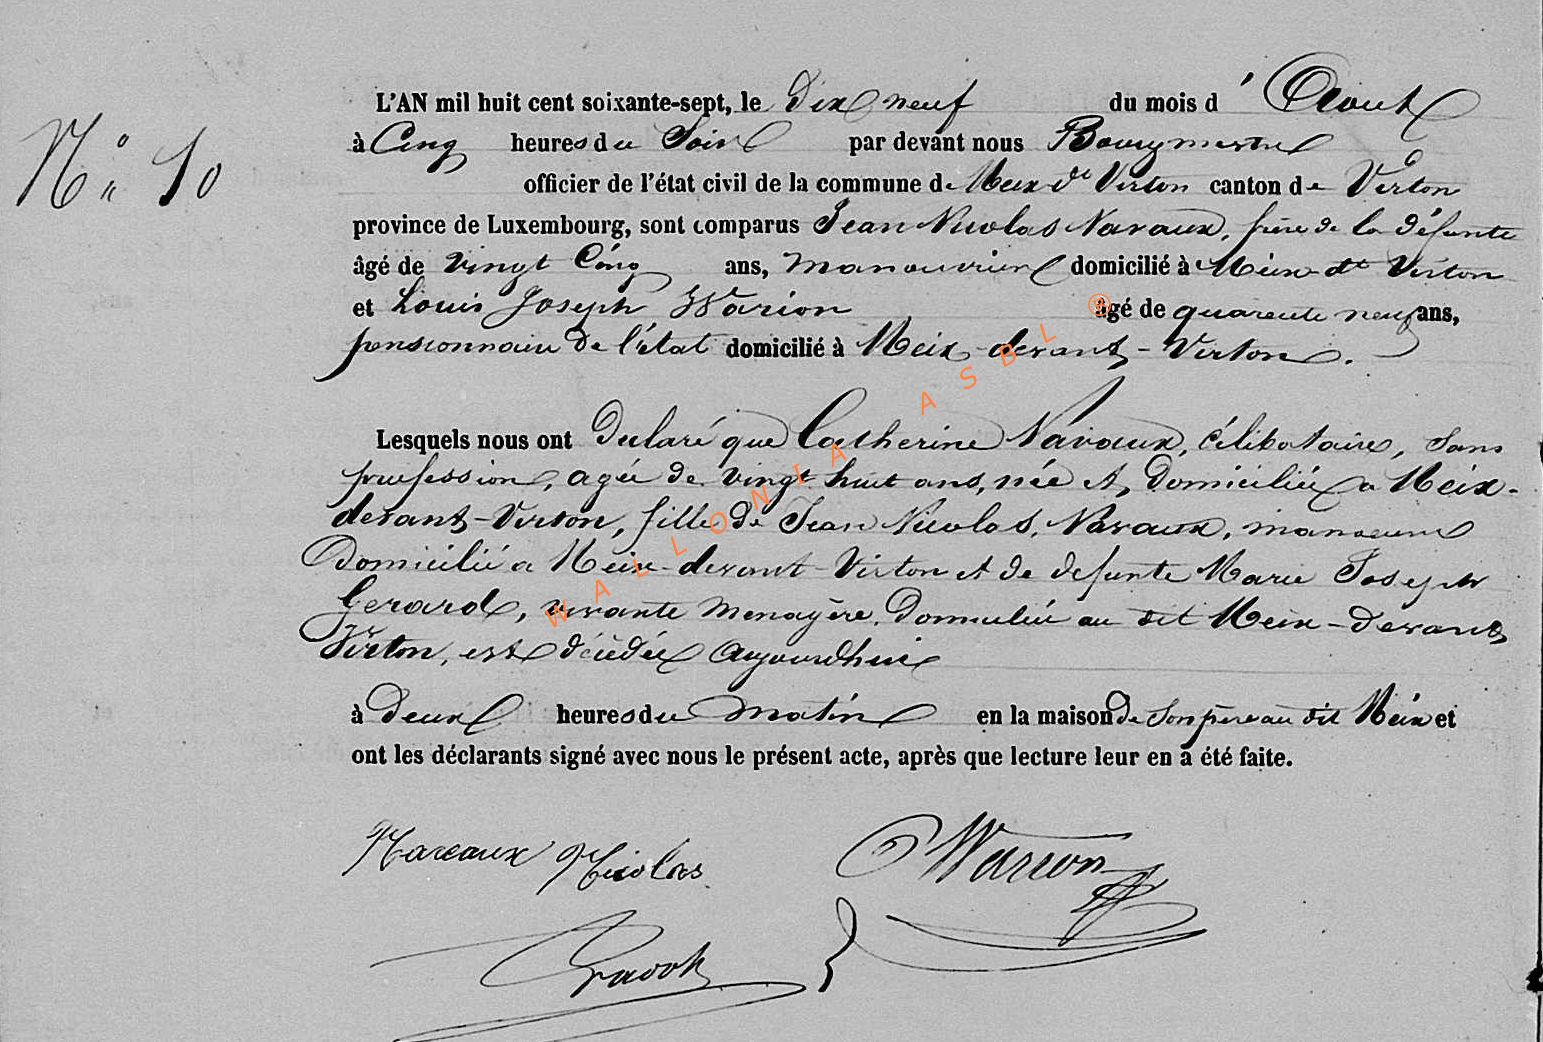 N° 10
L'AN mil huit cent soixante-sept, le Dix neuf du mois d'Aout
à Cinq heures du Soir par devant nous Bourgmestre
officier de l'état civil de la commune de Meix dt Virton canton de Virton
province de Luxembourg, sont comparus Jean Nicolas Navaux, frère de la défunte
âgé de vingt Cinq ans, manouvrier domicilié à Meix-dt Virton
et Louis Joseph Warion âgé de quarente neuf ans,
pensionnaire de l'état domicilié à Meix-devant-Virton.
Lesquels nous ont Déclaré que Catherine Navaux, célibataire, Sans
proffession, agée de vingt huit ans, née et Domiciliée a Meix-
devant-Virton, fille de Jean Nicolas Navaux, manoeuvre
Domicilié a Meix-devant-Virton et de defunte Marie Joseph
Gerard, vivante Menagère, Domiciliée au dit Meix-Devant
Virton, est décédée Aujourdhui
à Deux heures du Matin en la maison de Son père au dit Meix et
ont les déclarants signé avec nous le présent acte, après que lecture leur en a été faite.
Navaux Nicolas Warion
WALLONIA ASBL ®